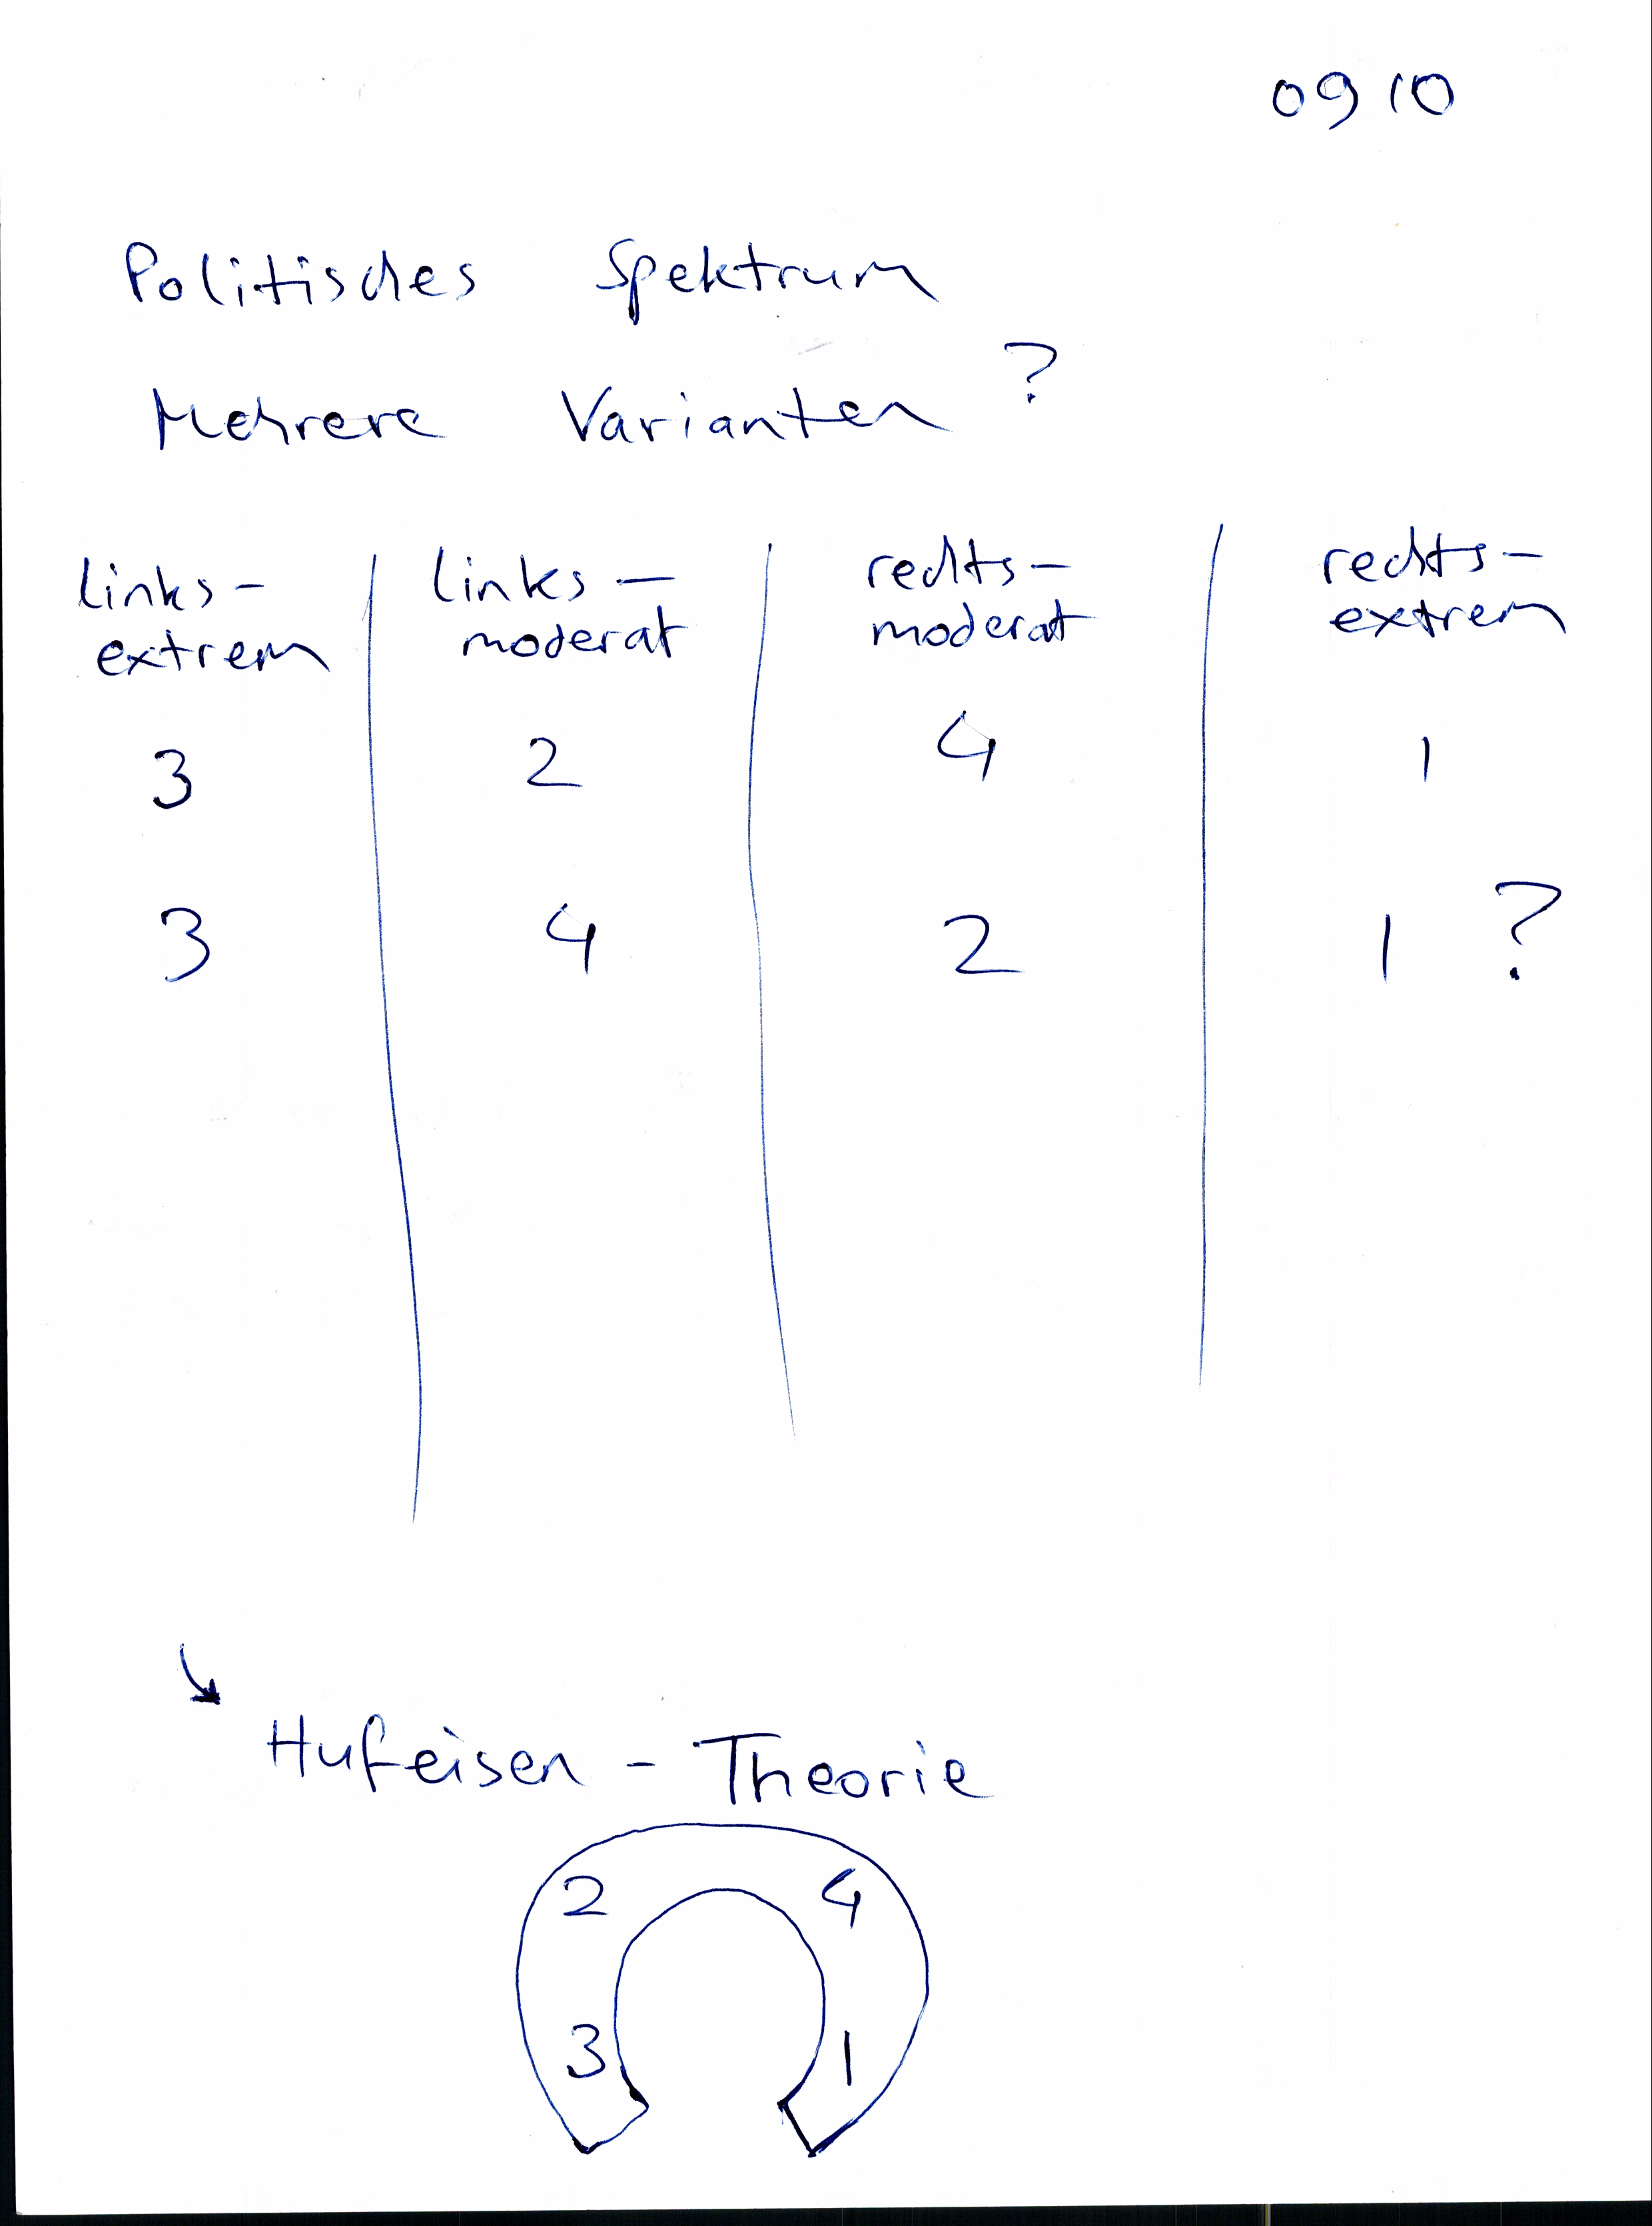 09 10
Politisches Spektrum
Mehrere Varianten ?
links- links- rechts- rechts-
extrem moderat moderat extrem
3 2 4 1
3 4 2 1 ?
↘
Hufeisen - Theorie
2 4
3 1